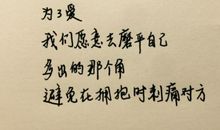 为了爱
我们愿意去磨平自己
多出的那个角
避免在拥抱时刺痛对方